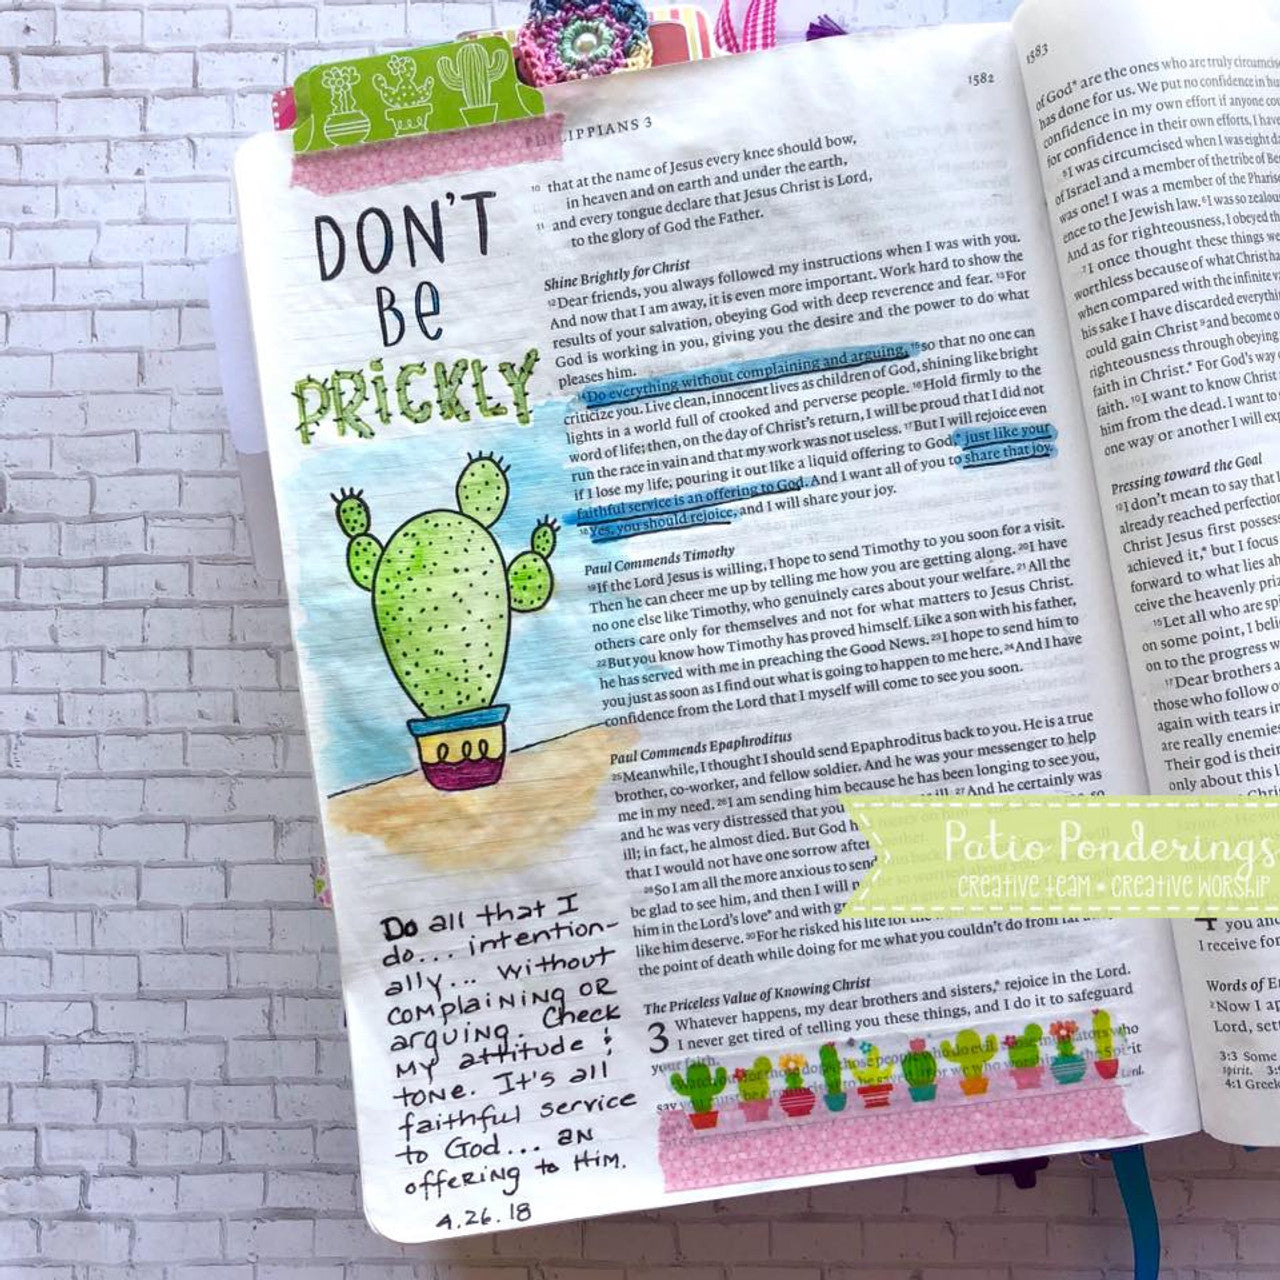 1582
PHILIPPIANS 3
DON'T
BE
PRICKLY
10 that at the name of Jesus every knee should bow,
in heaven and on earth and under the earth,
11 and every tongue declare that Jesus Christ is Lord,
to the glory of God the Father.
Shine Brightly for Christ
12Dear friends, you always followed my instructions when I was with you.
And now that I am away, it is even more important. Work hard to show the
results of your salvation, obeying God with deep reverence and fear. 13For
God is working in you, giving you the desire and the power to do what
pleases him.
14Do everything without complaining and arguing, 15so that no one can
criticize you. Live clean, innocent lives as children of God, shining like bright
lights in a world full of crooked and perverse people. 16Hold firmly to the
word of life; then, on the day of Christ's return, I will be proud that I did not
run the race in vain and that my work was not useless. 17But I will rejoice even
if I lose my life, pouring it out like a liquid offering to God,* just like your
faithful service is an offering to God. And I want all of you to share that joy.
18Yes, you should rejoice, and I will share your joy.
Paul Commends Timothy
19If the Lord Jesus is willing, I hope to send Timothy to you soon for a visit.
Then he can cheer me up by telling me how you are getting along. 20I have
no one else like Timothy, who genuinely cares about your welfare. 21All the
others care only for themselves and not for what matters to Jesus Christ.
22But you know how Timothy has proved himself. Like a son with his father,
he has served with me in preaching the Good News. 23I hope to send him to
you just as soon as I find out what is going to happen to me here. 24And I have
confidence from the Lord that I myself will come to see you soon.
Paul Commends Epaphroditus
25Meanwhile, I thought I should send Epaphroditus back to you. He is a true
brother, co-worker, and fellow soldier. And he was your messenger to help
me in my need. 26I am sending him because he has been longing to see you,
and he was very distressed that you ill. 27And he certainly was
ill; in fact, he almost died. But God
that I would not have one sorrow after
28So I am all the more anxious to send
be glad to see him, and then I will
him in the Lord's love* and with
like him deserve. 30For he risked his life for
the point of death while doing for me what you couldn't do from
The Priceless Value of Knowing Christ
3 Whatever happens, my dear brothers and sisters,* rejoice in the Lord.
I never get tired of telling you these things, and I do it to safeguard
your faith.
Do all that I
do... intention-
ally... without
complaining or
arguing. Check
my attitude &
tone. It's all
faithful service
to God... an
offering to Him.
4.26.18
1583
of God* are the ones who are truly
has done for us. We put no confidence in
confidence in my own effort if anyone
for confidence in their own efforts, I have
5I was circumcised when I was eight
of Israel and a member of the tribe of
was one! I was a member of the
ence to the Jewish law. 6I was so
And as for righteousness, I obeyed
7I once thought these things
worthless because of what Christ
when compared with the infinite
his sake I have discarded
could gain Christ 9and become
righteousness through obeying
faith in Christ.* For God's way
faith. 10I want to know Christ
him from the dead. I want to
one way or another I will
Pressing toward the Goal
12I don't mean to say that
already reached
Christ Jesus first
achieved it,* but I focus
forward to what lies
ceive the heavenly
15Let all who are
on some point, I
on to the progress
17Dear brothers
those who follow
again with tears
are really
Their god is their
only about this
Patio Ponderings
CREATIVE TEAM • CREATIVE WORSHIP
4 you
I receive
Words of
2Now I
Lord,
3:3 Some
spirit.
4:1 Greek